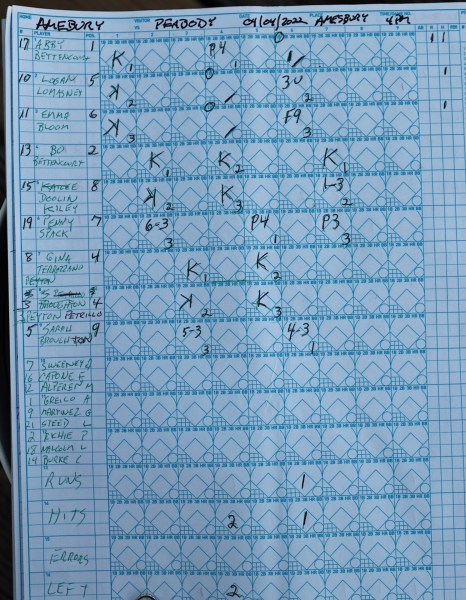 HOME AMESBURY VISITOR VS. PEABODY 04/04/2022 AMESBURY 4PM
# PLAYER POS. 1 2 3 4 5 6 7
17 ABBY BETTENCOURT 1 K 1 P4 1 1 1
10 LOGAN LOMASNEY 5 K 2 3U 2 1
11 EMMA BLOOM 6 K 3 F9 3 1
13 BO BETTENCOURT 2 K 1 K 2 K 1
15 DOOLIN KILEY 8 K 2 K 3 1-3 2
19 PENNY STACK 7 6-3 3 P4 1 P3 3
8 GINA TERRAZZANO 4 K 1 K 2
PEYTON
3 BROUGHTON 4 K 2 K 3
3 PEYTON PETRILLO
5 SARAH BROUGHTON 9 5-3 3 4-3 1
7 SWEENEY
6 CAPONE E
2 M
1 GREICO A
9 MARTINEZ G
21 STEED L
2
18 MALCOLM L
14 BURKE C
RUNS 1
HITS 2 1
ERRORS
LEFT 2